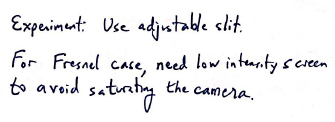 Experiment: Use adjustable slit.
For Fresnel case, need low intensity screen
to avoid saturating the camera.